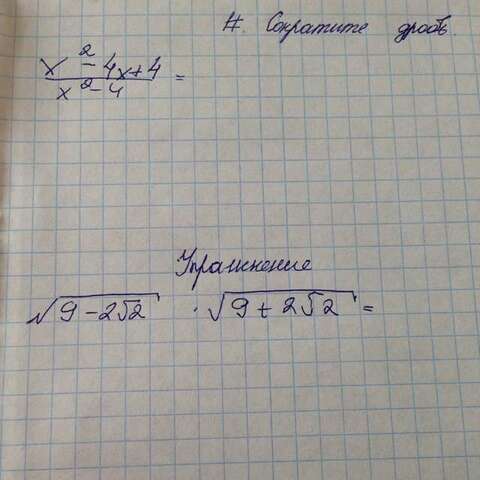 H. Сократите дробь.
x² - 4x + 4
x² - 4 =
Упражнение
√9 - 2√2 · √9 + 2√2 =